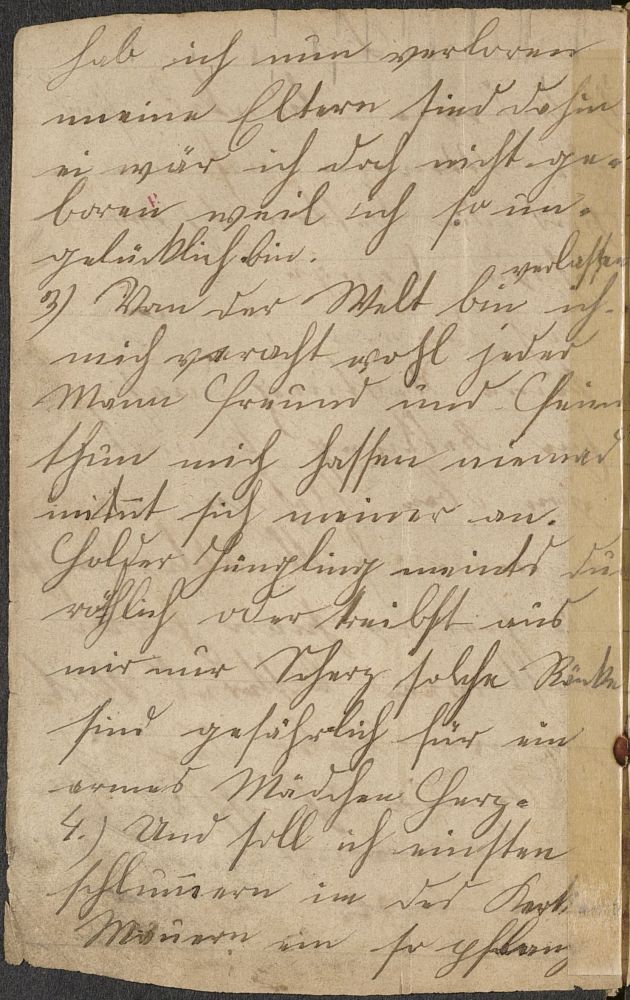 hab ich nun verloren
meine Eltern sind dahin
ei wär ich doch nicht ge-
boren weil ich so un-
gelücklich bin.
verlassen
3) Von der Welt bin ich
mich veracht wohl jeder
Mann Freund und Feind
thun mich hassen niemand
nimt sich meiner an.
Holder Jüngling meints du
röhlich oder treibst aus
mir nur Scherz solche Ränke
sind gefährlich für ein
armes Mädchen Herz.
4.) Und soll ich einsten
schlummern in des
Mauern ein so pflanz